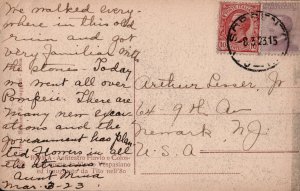 We walked every-
where in this old
ruin and got
very familiar with
the stones. Today
we went all over
Pompeii. There are
many new excav
ations and the
government has plan
ted flowers in all
the
Aunt Maud
Mar. 3-23
Arthur Lesser, Jr
64 9th Av
Newark NJ.
U.S.A.
ROMA - Anfiteatro Flavio o Colos-
Vespasiano
ed da Tito nell'80
3.23.15